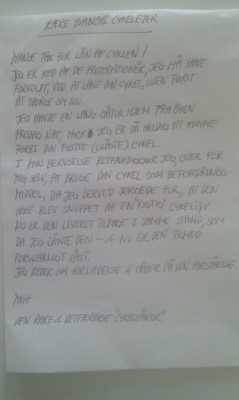 KÆRE BIANCHI CYKELEJER
MANGE TAK FOR LÅN AF CYKLEN!
JEG ER KED AF DE FRUSTRATIONER, JEG MÅ HAVE
FORVOLDT, VED AT LÅNE DIN CYKEL, UDEN FØRST
AT SPØRGE OM LOV.
JEG HAVDE EN LANG GÅTUR HJEM FRA BYEN
FREDAG NAT, MEN JEG ER SÅ HELDIG AT KOMME
FORBI DIN FLOTTE (ULÅSTE) CYKEL.
I MIN BERUSELSE RETFÆRDIGGJORDE JEG OVER FOR
MIG SELV, AT BRUGE DIN CYKEL SOM BEFORDRINGS-
MIDDEL, DA JEG DERVED SØRGEDE FOR, AT DEN
IKKE BLEV SNUPPET AF EN "RIGTIG" CYKELTYV.
NU ER DEN LEVERET TILBAGE I SAMME STAND, SOM
DA JEG LÅNTE DEN – OG NU ER DEN TILMED
FORSVARLIGT LÅST.
JEG BEDER OM FORLADELSE OG HÅBER PÅ DIN FORSTÅELSE.
MVH
DEN RARE OG RETFÆRDIGE "CYKELLÅNER"